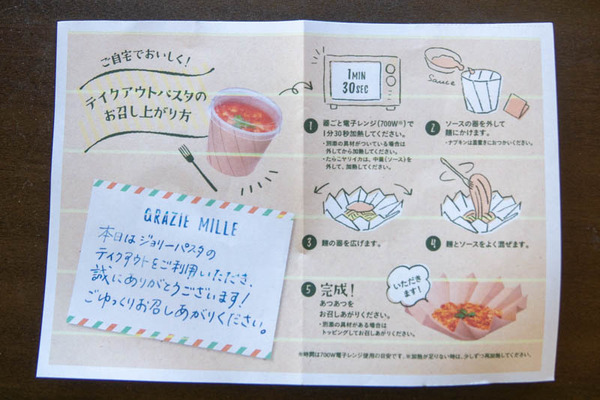 ご自宅でおいしく!
テイクアウトパスタの
お召し上がり方
GRAZIE MILLE
本日はジョリーパスタの
テイクアウトをご利用いただき、
誠にありがとうございます!
ごゆっくりお召しあがりください。
1MIN
30SEC
1 器ごと電子レンジ(700W※)で
1分30秒加熱してください。
・別添の具材がついている場合は
外してから加熱してください。
・たらこヤリイカは、中皿(ソース)を
外して、加熱してください。
Sauce
2 ソースの器を外して
麺にかけます。
・ナプキンは器置きにお使いください。
3 麺の器を広げます。
4 麺とソースをよく混ぜます。
5 完成!
あつあつを
お召しあがりください。
・別添の具材がある場合は
トッピングしてお召しあがりください。
いただき
ます!
※時間は700W電子レンジ使用の目安です。※加熱が足りない時は、少しずつ再加熱してください。